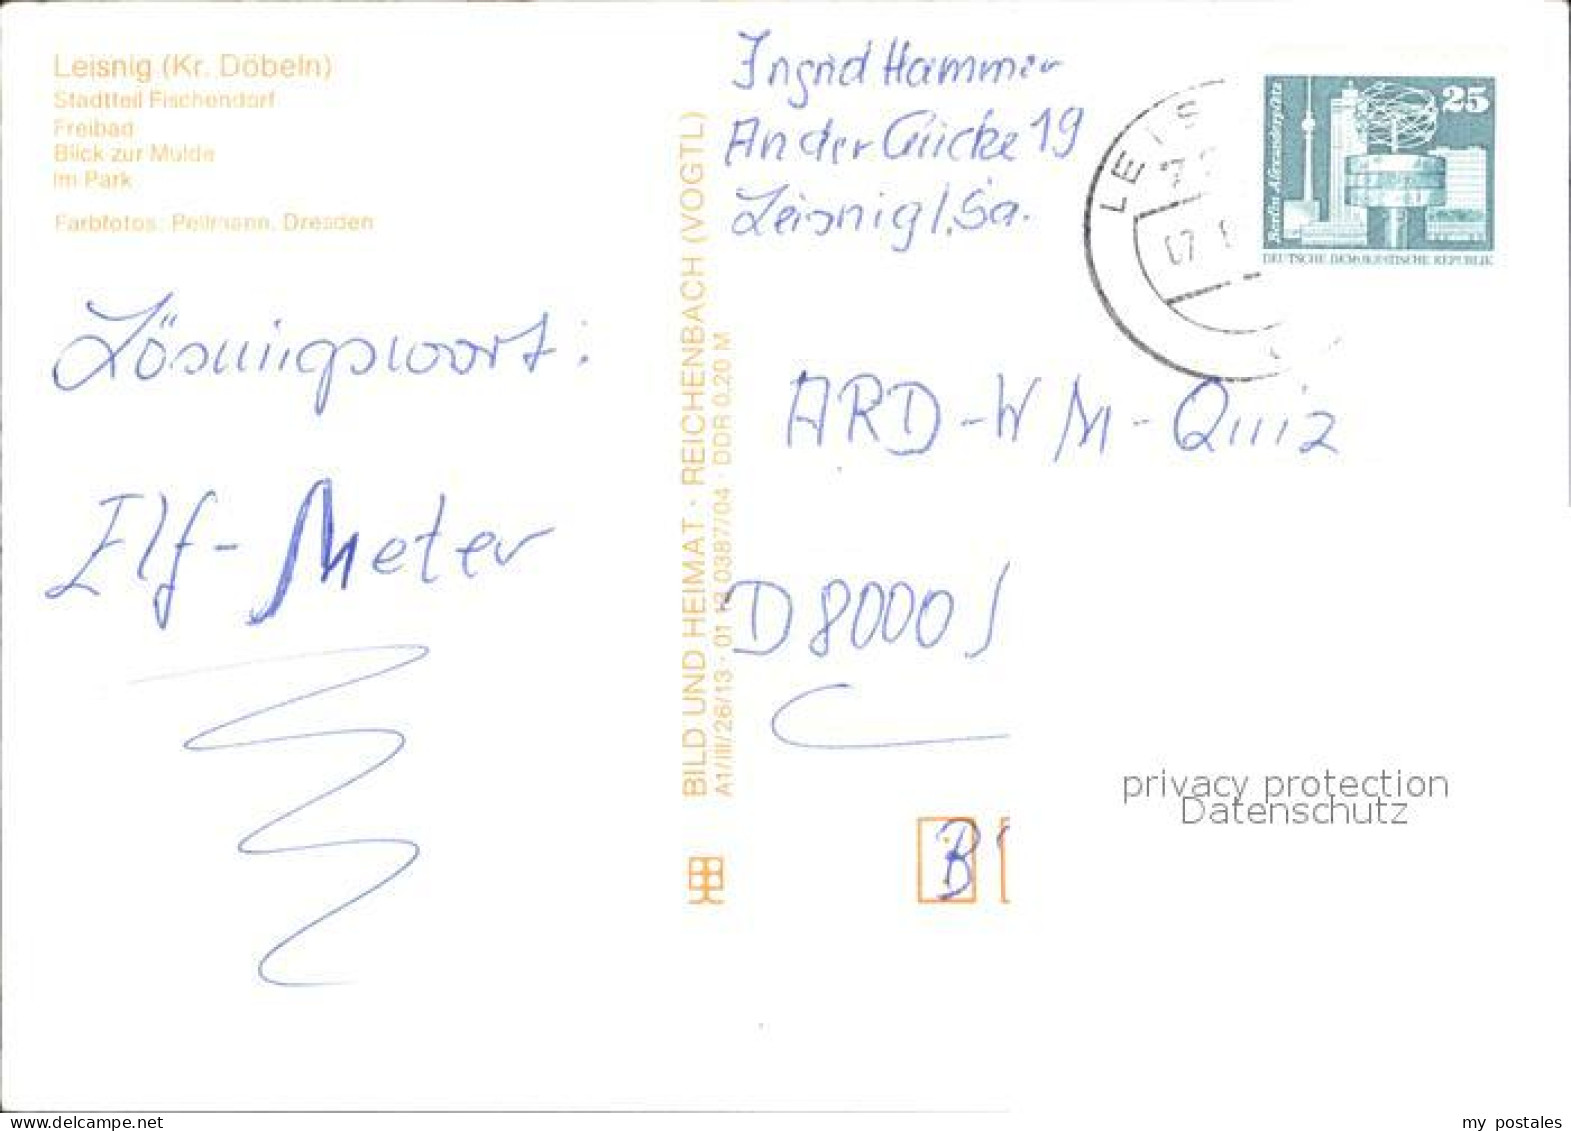 Leisnig (Kr. Döbeln)
Stadtteil Fischendorf
Freibad
Blick zur Mulde
Im Park
Farbfotos: Pellmann, Dresden
Lösungswort:
Elf-Meter
BILD UND HEIMAT · REICHENBACH (VOGTL)
A1/III/26/13 · 01 13 0387/04 · DDR 0,20 M
Ingrid Hammer
An der Lücke 19
Leisnig/Sa.
LEIS
Berlin Alexanderplatz
25
DEUTSCHE DEMOKRATISCHE REPUBLIK
ARD-WM-Quiz
D 8000
privacy protection
Datenschutz
B
my postales